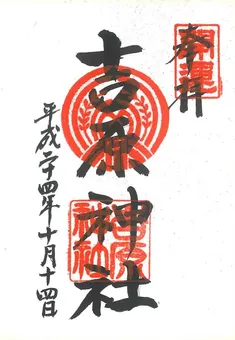 奉拝
開運
吉原神社
吉原神社
平成二十四年十月十四日